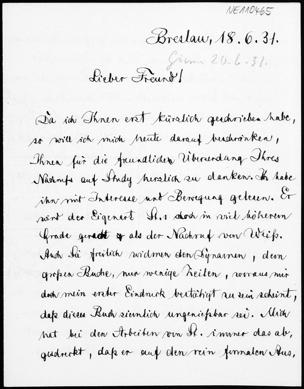 NE110465
Breslau, 18.6.31.
20.6.31.
Lieber Freund!
Da ich Ihnen erst kürzlich geschrieben habe,
so will ich mich heute darauf beschränken,
Ihnen für die freundliche Übersendung Ihres
Nachrufs auf Study herzlich zu danken. Ich habe
ihn mit Interesse und Bewegung gelesen. Er
wird der Eigenart St.s doch in viel höherem
Grade gerecht als der Nachruf von Weiß.
Auch Sie freilich widmen den Dynamen, dem
großen Buche, nur wenige Zeilen, woraus mir
doch mein erster Eindruck bestätigt zu sein scheint,
daß dieses Buch ziemlich ungenießbar sei. Mich
hat bei den Arbeiten von St. immer das ab-
geschreckt, daß er auf den rein formalen Aus-